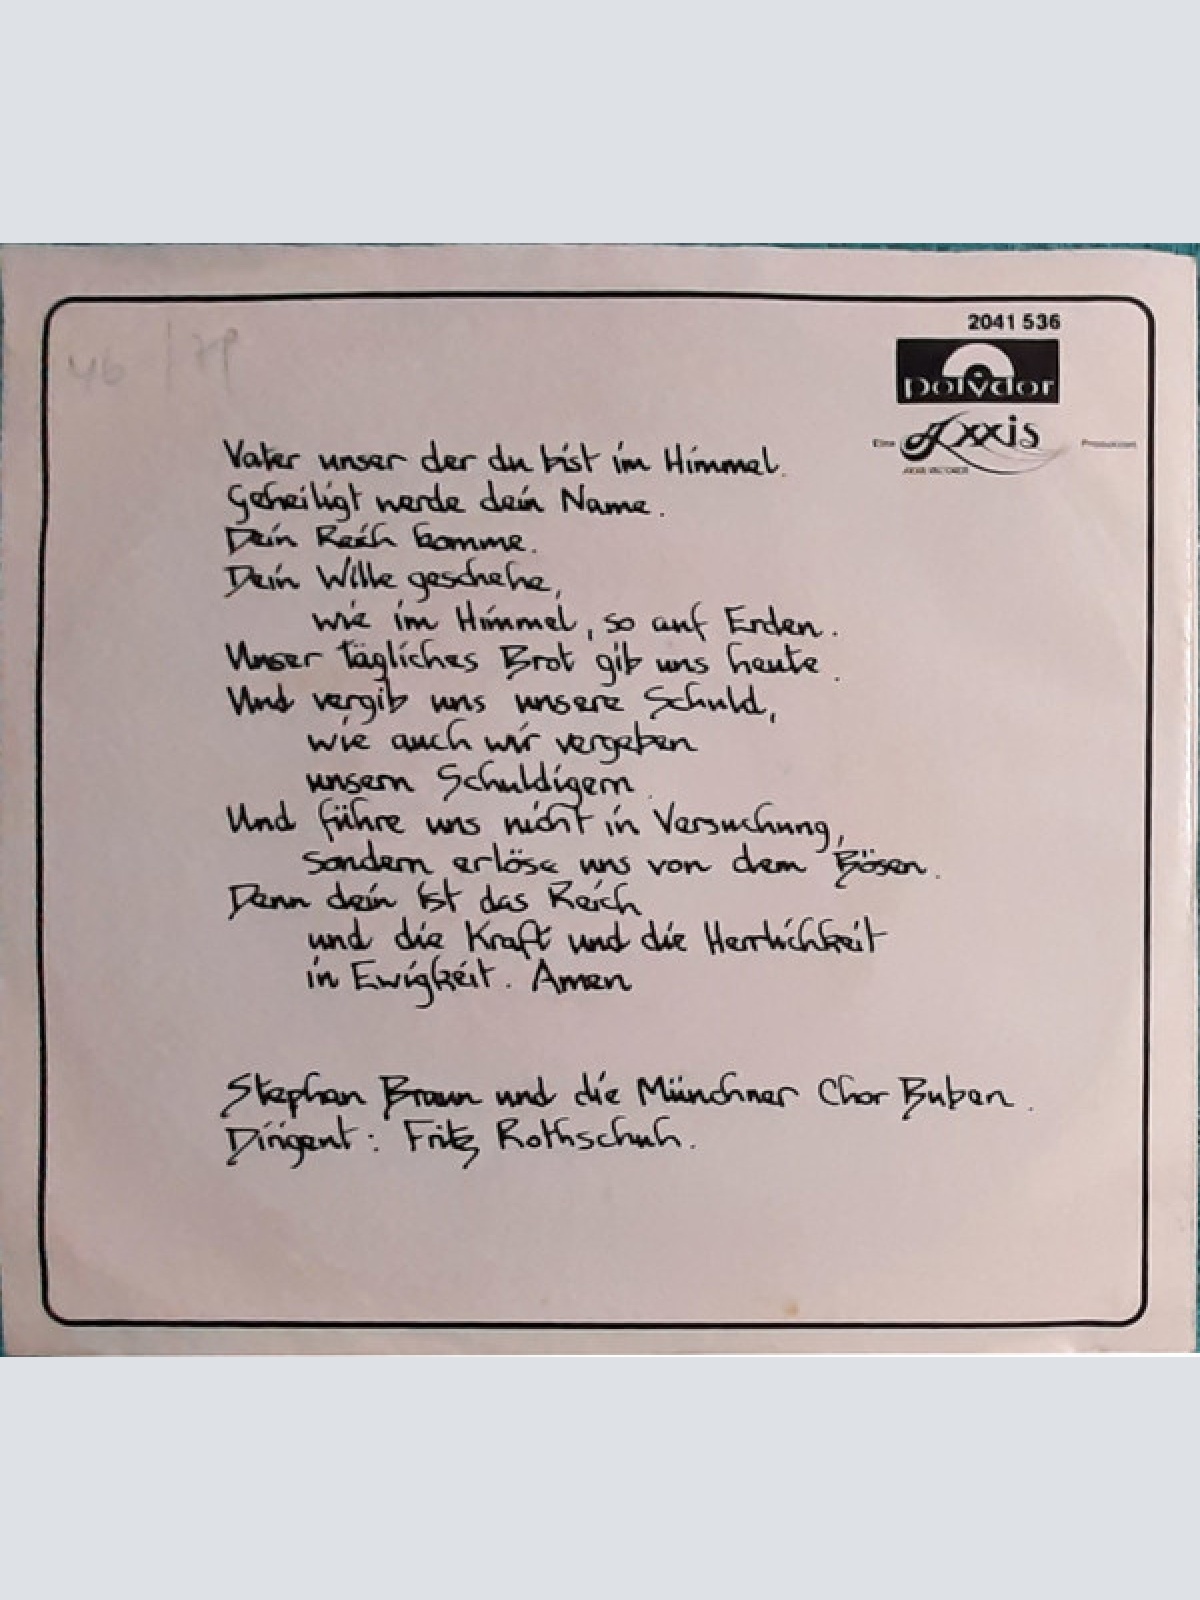 2041 536
polydor
Eine Axxis Produktion
AXXIS RECORDS
Vater unser der du bist im Himmel.
Geheiligt werde dein Name.
Dein Reich komme.
Dein Wille geschehe,
wie im Himmel, so auf Erden.
Unser tägliches Brot gib uns heute.
Und vergib uns unsere Schuld,
wie auch wir vergeben
unsern Schuldigern.
Und führe uns nicht in Versuchung,
sondern erlöse uns von dem Bösen.
Denn dein ist das Reich
und die Kraft und die Herrlichkeit
in Ewigkeit. Amen
Stephan Braun und die Münchner Chor Buben.
Dirigent: Fritz Rothschuh.